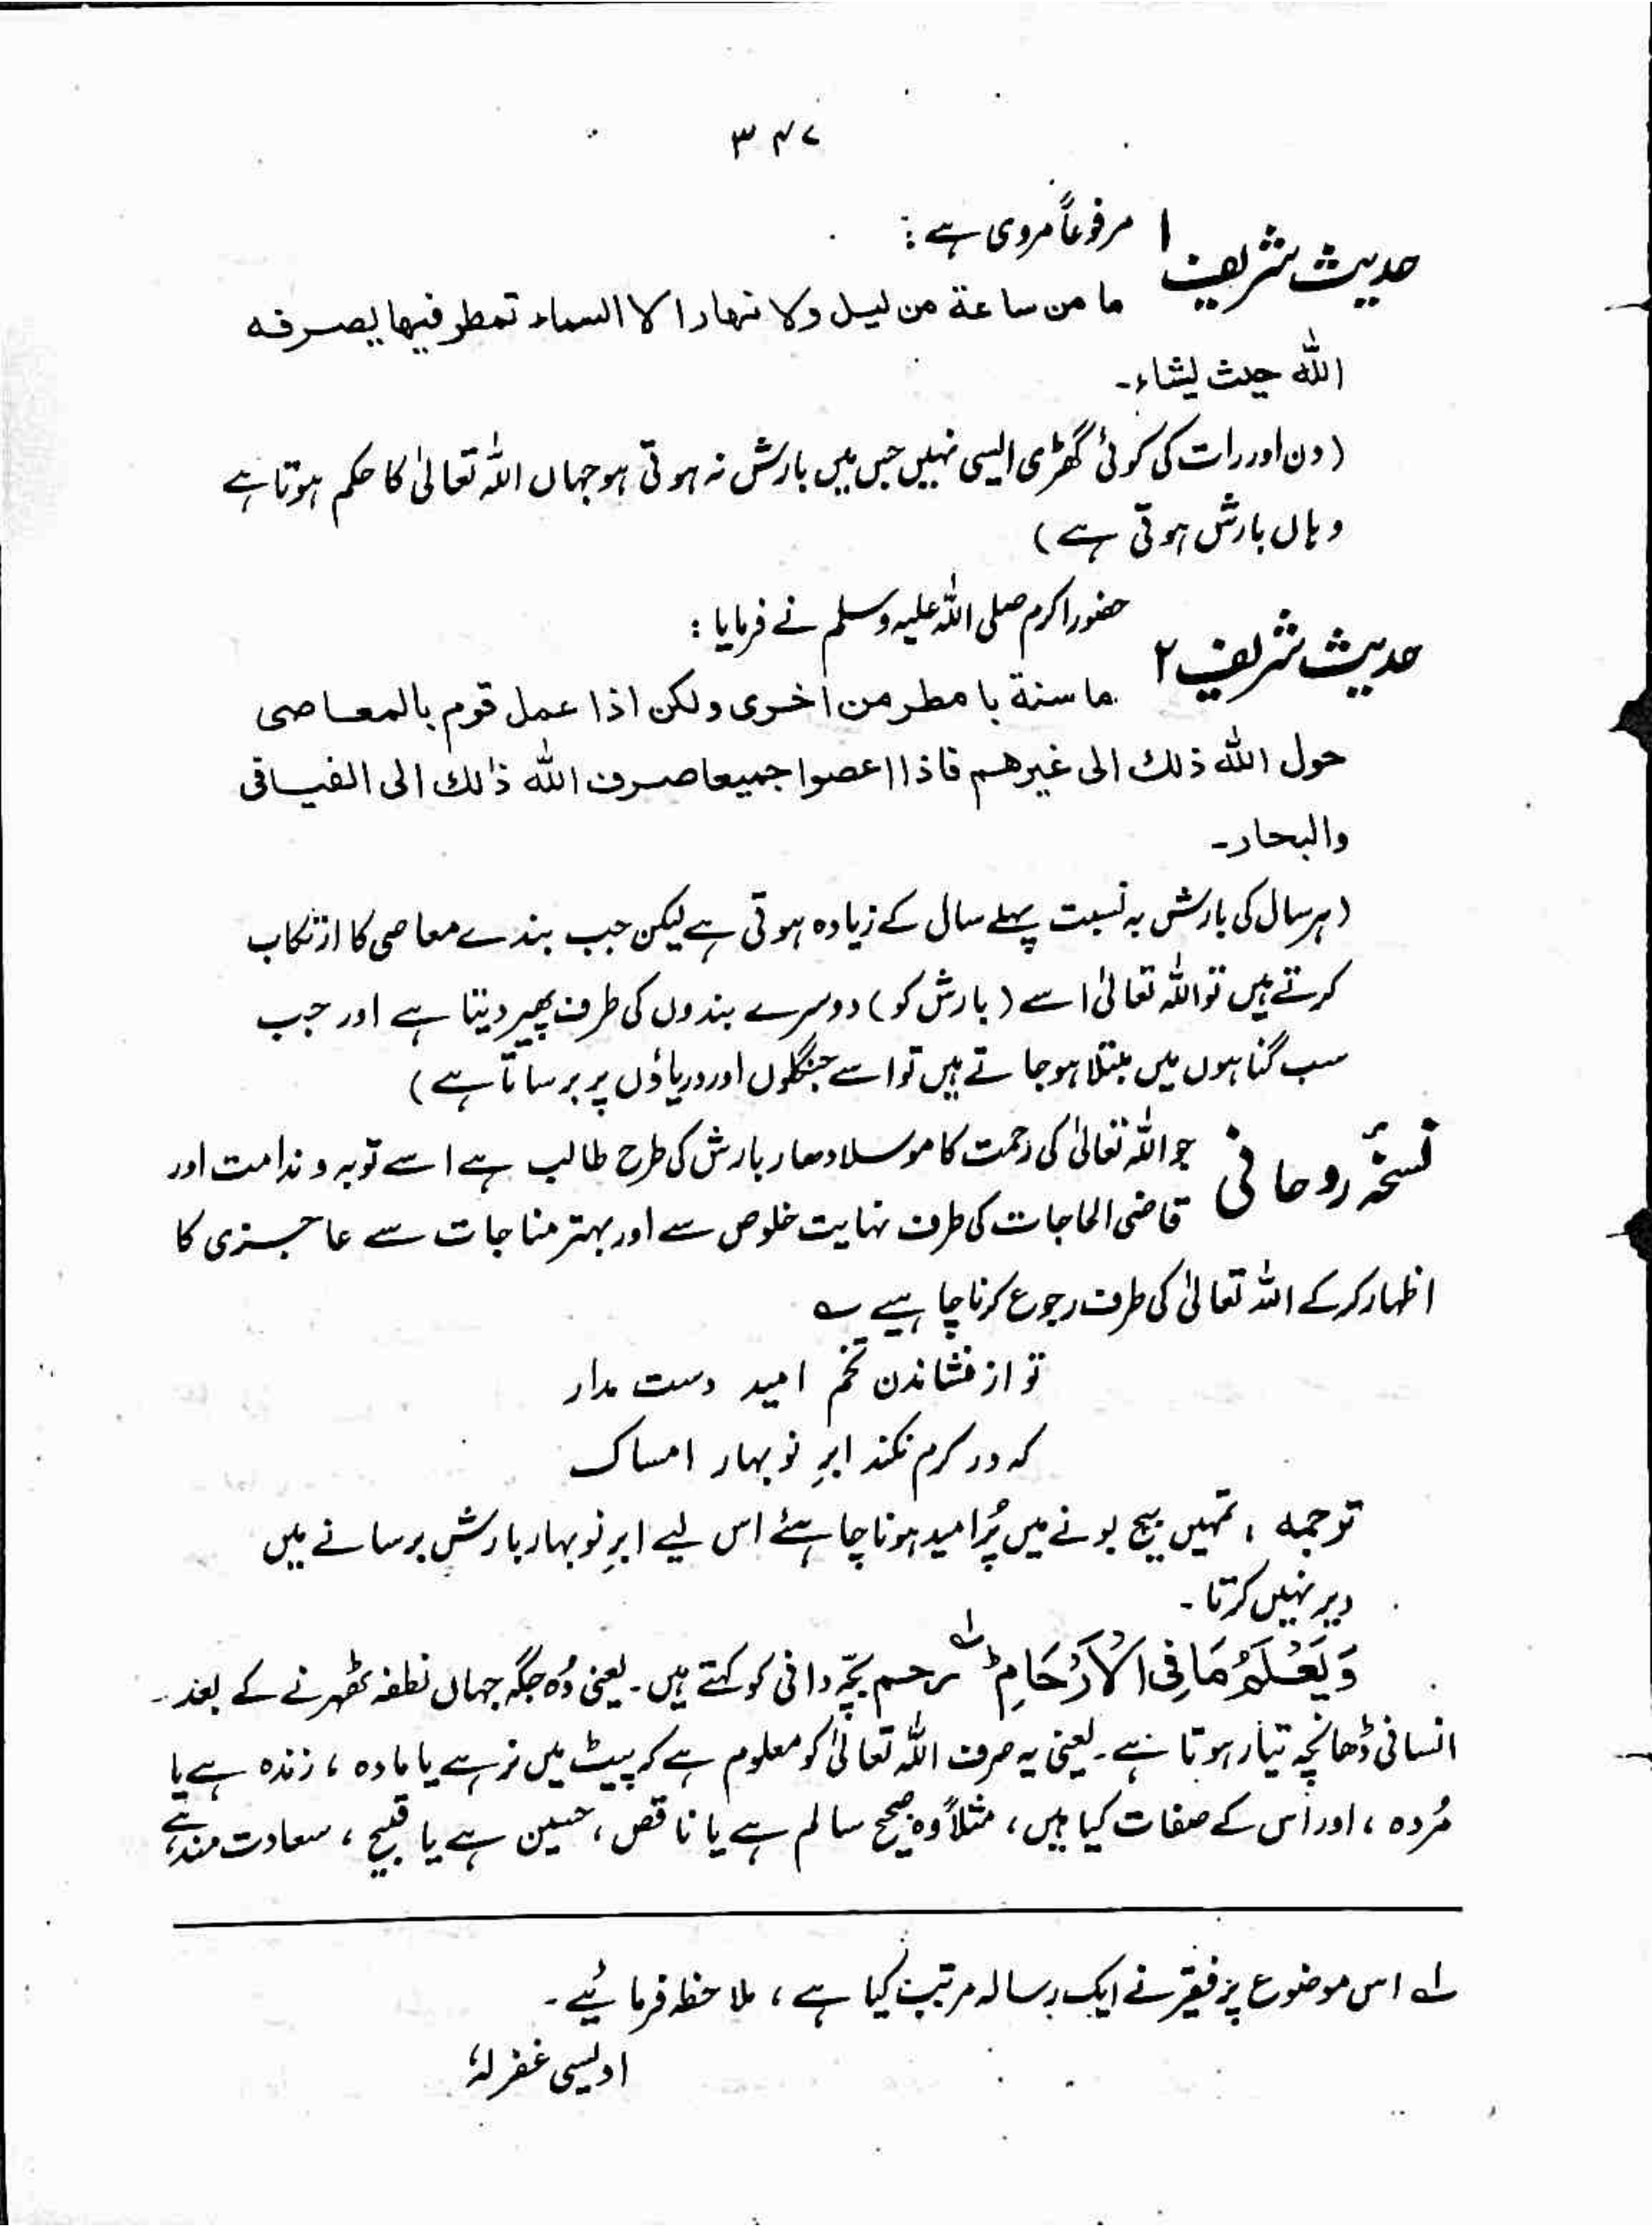 ۳۴۷
حدیث شریف ۱ مرفوعاً مروی ہے :
ما من ساعة من لیل ولا نهار الا السماء تمطر فیها یصرفه
الله حیث یشاء۔
(دن اور رات کی کوئی گھڑی ایسی نہیں جس میں بارش نہ ہوتی ہو جہاں اللہ تعالیٰ کا حکم ہوتا ہے
وہاں بارش ہوتی ہے)
حدیث شریف ۲ حضور اکرم صلی اللہ علیہ وسلم نے فرمایا :
ما سنة بامطر من اخری ولکن اذا عمل قوم بالمعاصی
حول الله ذلك الی غیرهم فاذا اعصوا جمیعا صرف الله ذٰلك الی الفیافی
والبحار۔
(ہر سال کی بارش بہ نسبت پہلے سال کے زیادہ ہوتی ہے لیکن جب بندے معاصی کا ارتکاب
کرتے ہیں تو اللہ تعالیٰ اسے (بارش کو) دوسرے بندوں کی طرف پھیر دیتا ہے اور جب
سب گناہوں میں مبتلا ہو جاتے ہیں تو اسے جنگلوں اور دریاؤں پر برساتا ہے)
نسخۂ روحانی جو اللہ تعالیٰ کی رحمت کا موسلادھار بارش کی طرح طالب ہے اسے توبہ و ندامت اور
قاضی الحاجات کی طرف نہایت خلوص سے اور بہتر مناجات سے عاجزی کا
اظہار کر کے اللہ تعالیٰ کی طرف رجوع کرنا چاہیے ؎
تو از فشاندن تخم امید دست مدار
کہ در کرم نکند ابرِ نو بہار امساک
ترجمہ : تمہیں بیج بونے میں پُر امید ہونا چاہئے اس لیے ابرِ نو بہار بارش برسانے میں
دیر نہیں کرتا۔
وَیَعْلَمُ مَا فِی الْاَرْحَامِ ؕ لہ رحم بچّہ دانی کو کہتے ہیں۔ یعنی وُہ جگہ جہاں نطفہ ٹھہرنے کے بعد
انسانی ڈھانچہ تیار ہوتا ہے۔ یعنی یہ صرف اللہ تعالیٰ کو معلوم ہے کہ پیٹ میں نر ہے یا مادہ ، زندہ ہے یا
مُردہ ، اور اس کے صفات کیا ہیں، مثلاً وہ صحیح سالم ہے یا ناقص ، حسین ہے یا قبیح ، سعادت مند ہے
لہ اس موضوع پر فقیر نے ایک رسالہ مرتب کیا ہے ، ملاحظہ فرمائیے۔
اویسی غفرلہٗ